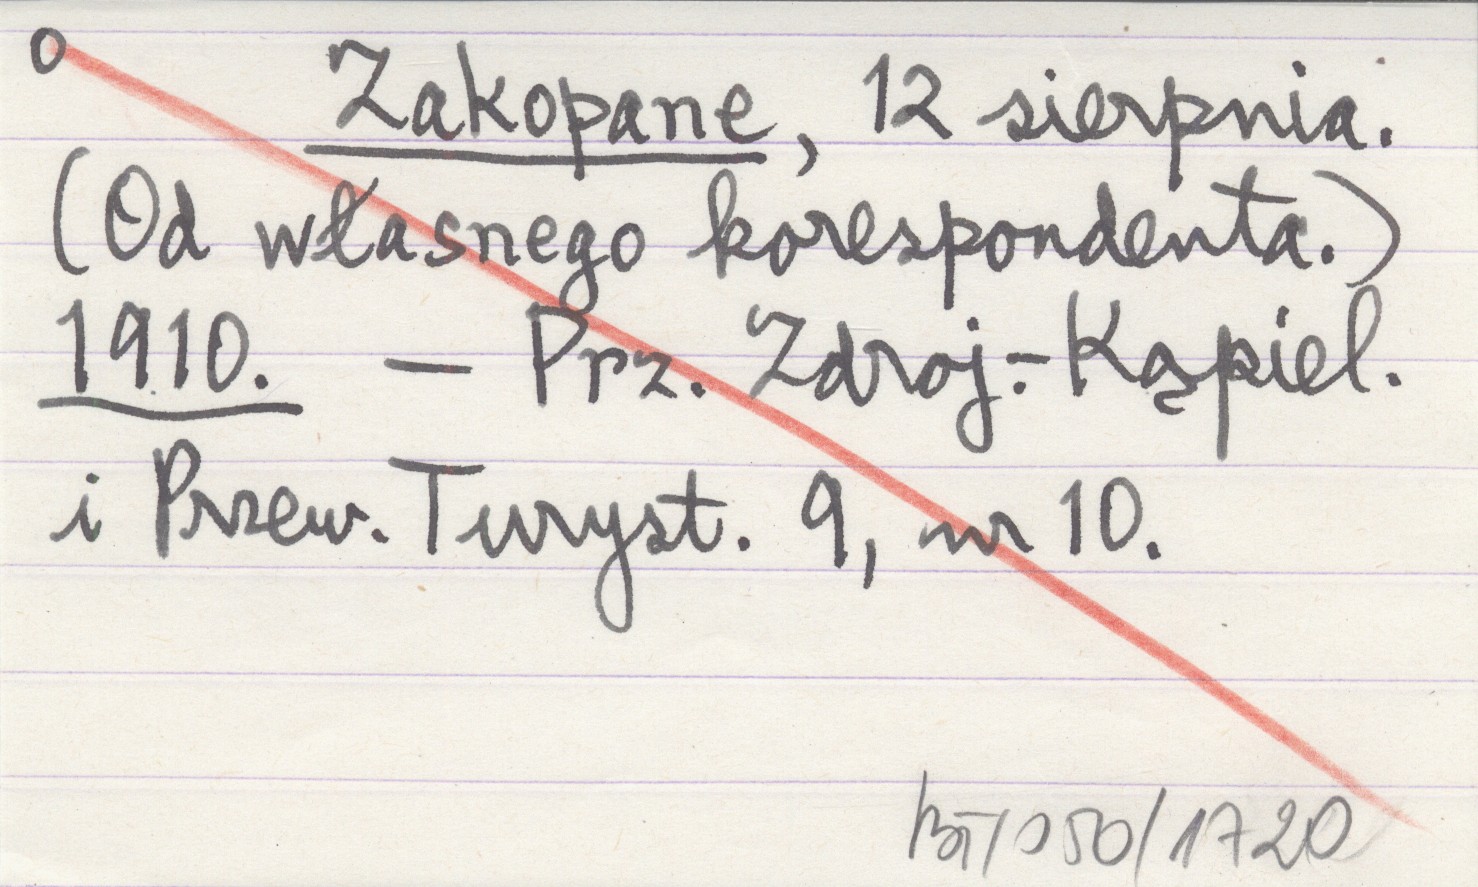 o Zakopane, 12 sierpnia.
(Od własnego korespondenta.)
1910. — Prz. Zdroj.-Kąpiel.
i Przew. Turyst. 9, nr 10.
/1720